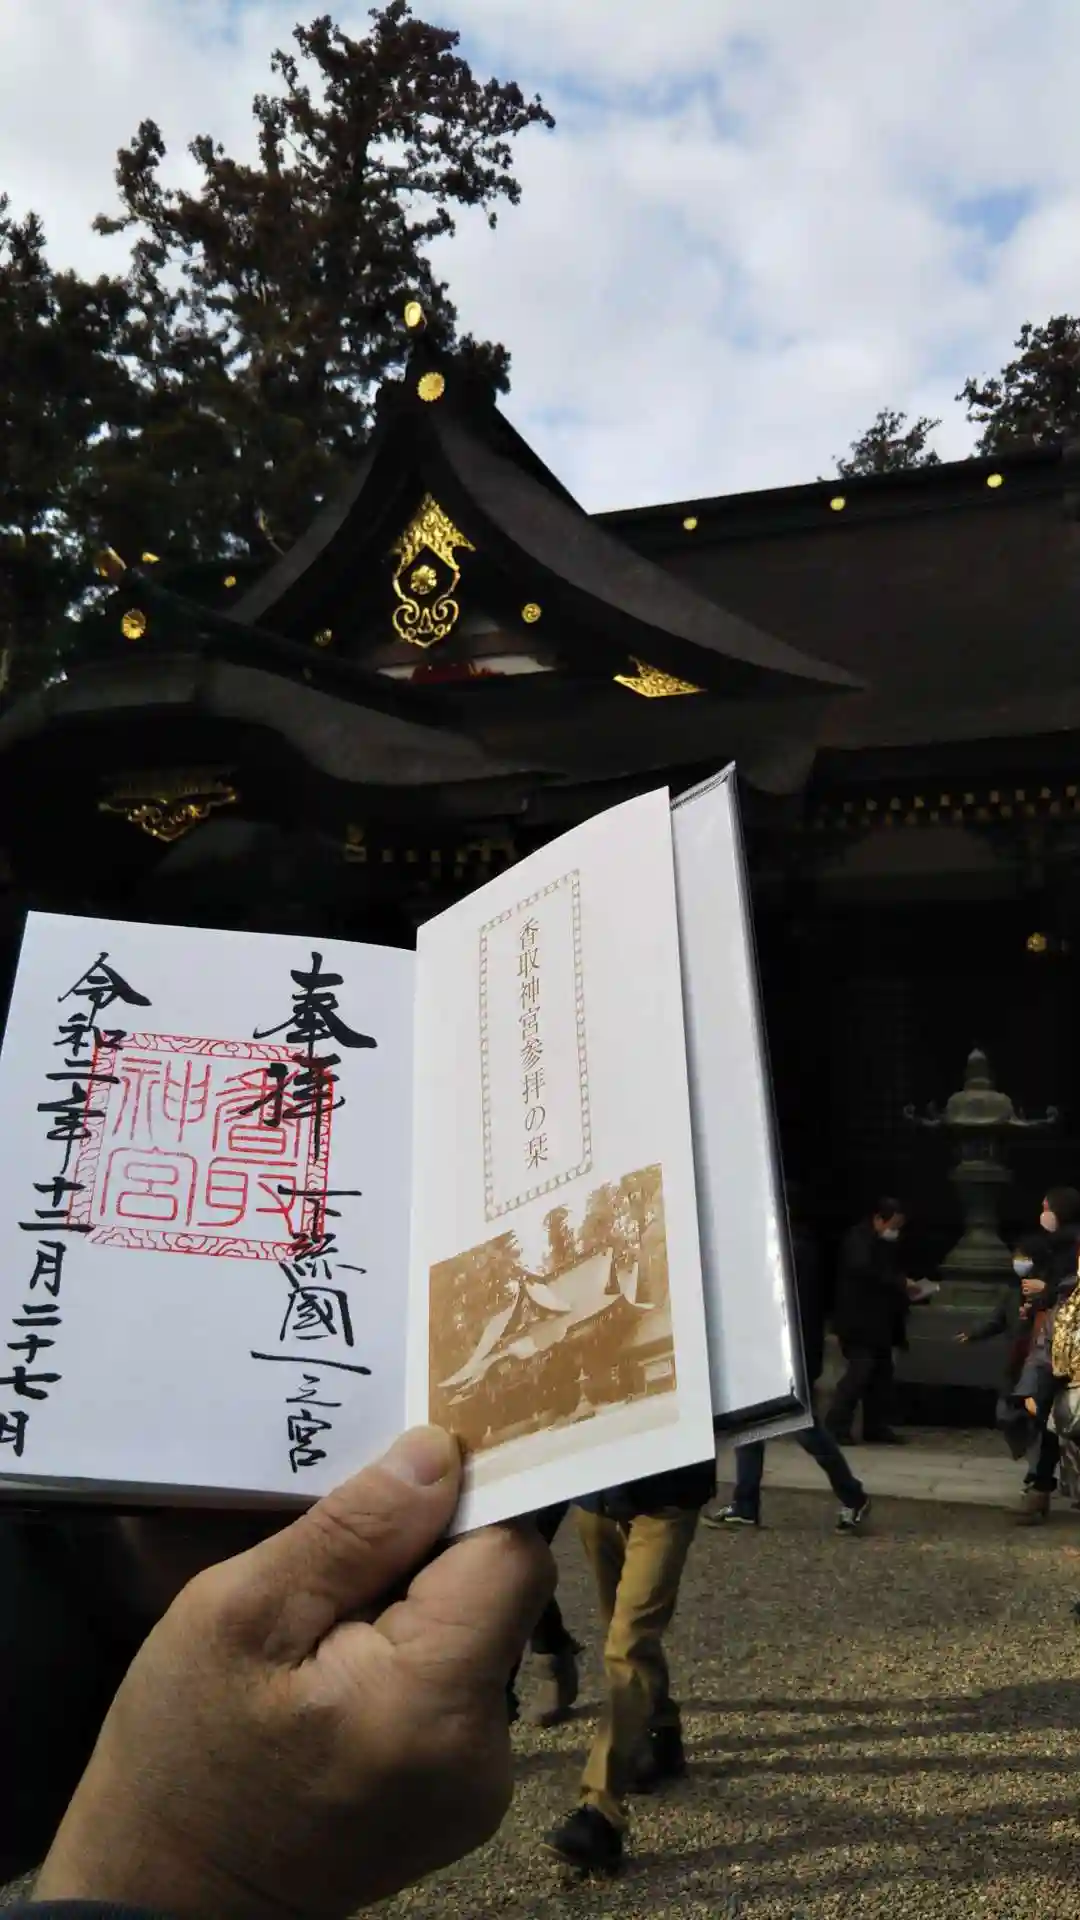 香取神宮参拝の栞
奉拝
下総國一之宮
香取
神宮
令和二年十二月二十七日